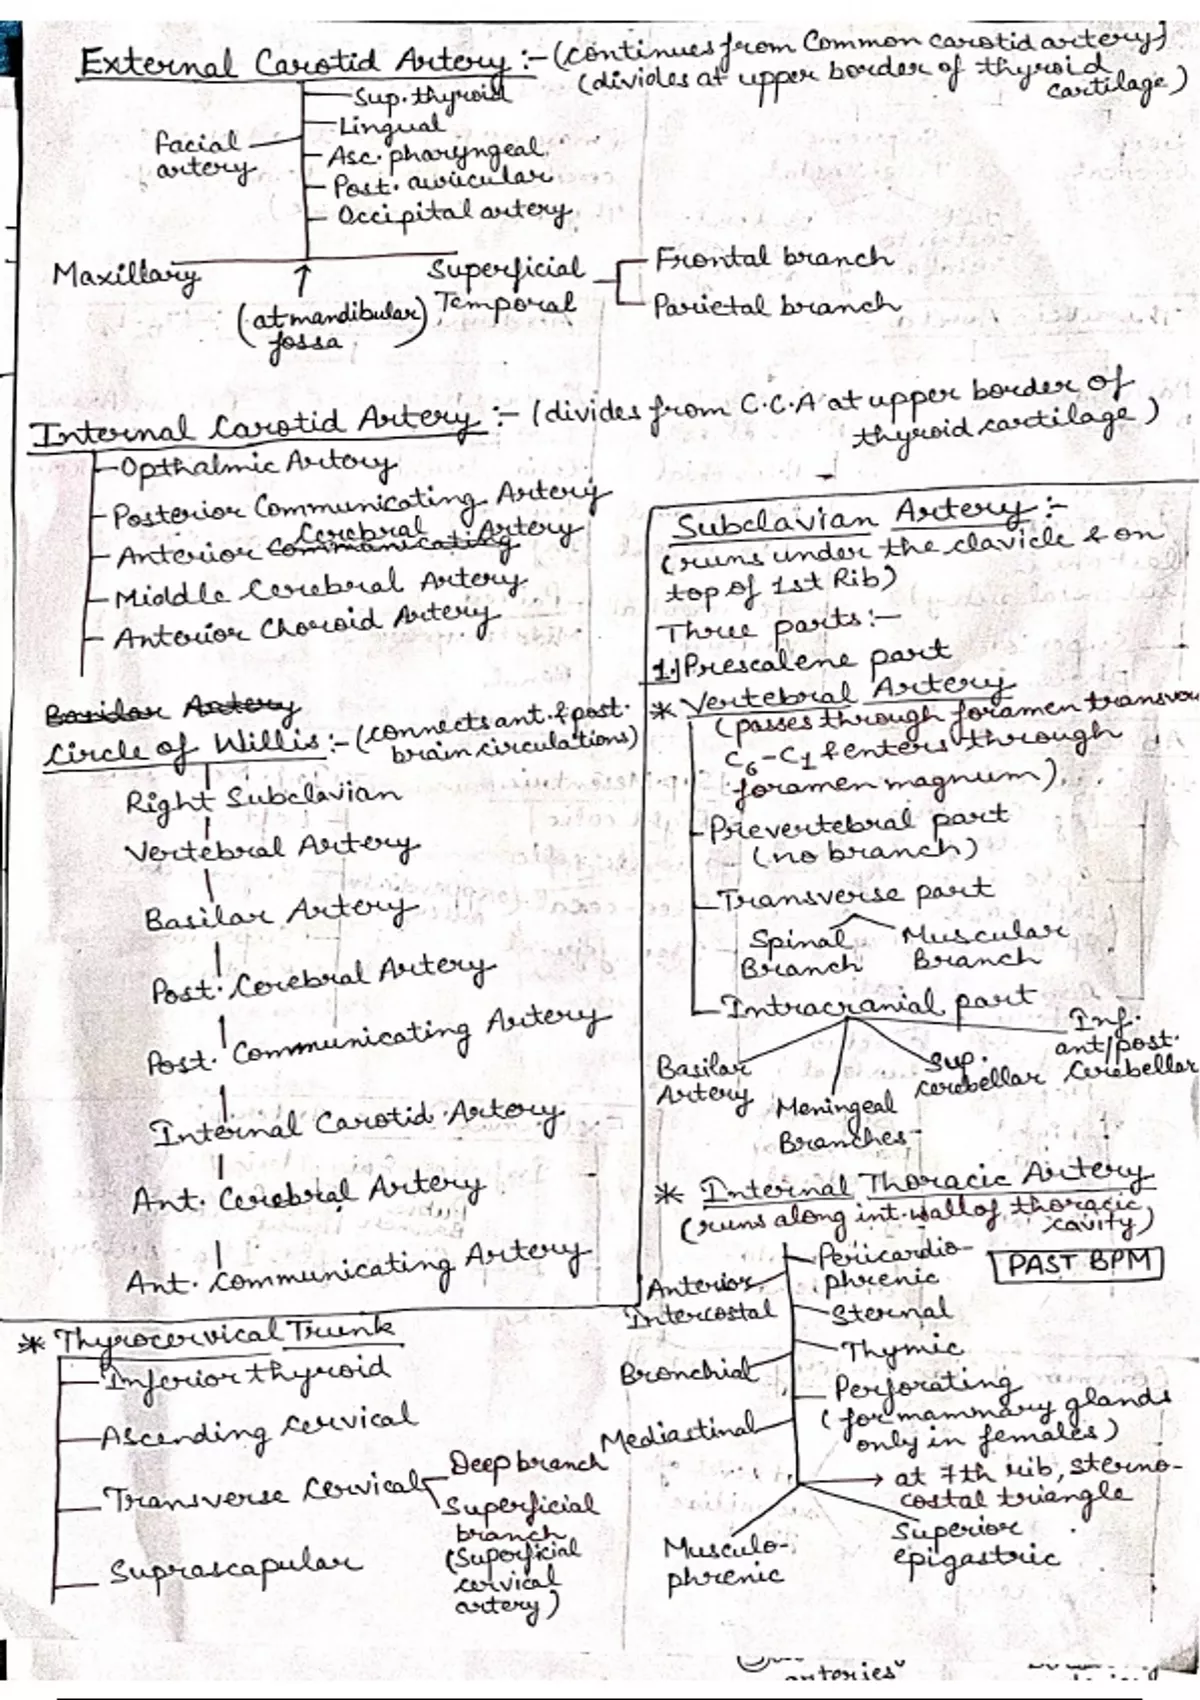 External Carotid Artery :- (continues from Common carotid artery)
(divides at upper border of thyroid
cartilage)
Sup. thyroid
Lingual
Facial
artery
Asc. pharyngeal
Post. auricular
Occipital artery
Maxillary
(at mandibular)
fossa
Superficial
Temporal
Frontal branch
Parietal branch
Internal Carotid Artery :- (divides from C.C.A at upper border of
thyroid cartilage)
Opthalmic Artery
Posterior Communicating Artery
Cerebral Artery
Anterior Communicating
Middle Cerebral Artery
Anterior Choroid Artery
Basilar Artery
Circle of Willis :- (connects ant. & post.
brain circulations)
Right Subclavian
Vertebral Artery
Basilar Artery
Post. Cerebral Artery
Post. Communicating Artery
Internal Carotid Artery
Ant. Cerebral Artery
Ant. Communicating Artery
Subclavian Artery :-
(runs under the clavicle & on
top of 1st Rib)
Three parts :-
1. Prescalene part
* Vertebral Artery
(passes through foramen transver
C6-C1 & enters through
foramen magnum)
Prevertebral part
(no branch)
Transverse part
Spinal
Branch
Muscular
Branch
Intracranial part
Basilar
Artery
Meningeal
Branches
Sup.
cerebellar
Inf.
ant/post.
Cerebellar
* Internal Thoracic Artery
(runs along int. wall of thoracic
cavity)
Pericardio-
phrenic
PAST BPM
Anterior
Intercostal
Sternal
Thymic
Bronchial
Perforating
(for mammary glands
only in females)
Mediastinal
at 7th rib, sterno-
costal triangle
Musculo-
phrenic
Superior
epigastric
* Thyrocervical Trunk
Inferior thyroid
Ascending cervical
Transverse Cervical
Deep branch
Superficial
branch
(Superficial
cervical
artery)
Suprascapular
arteries"